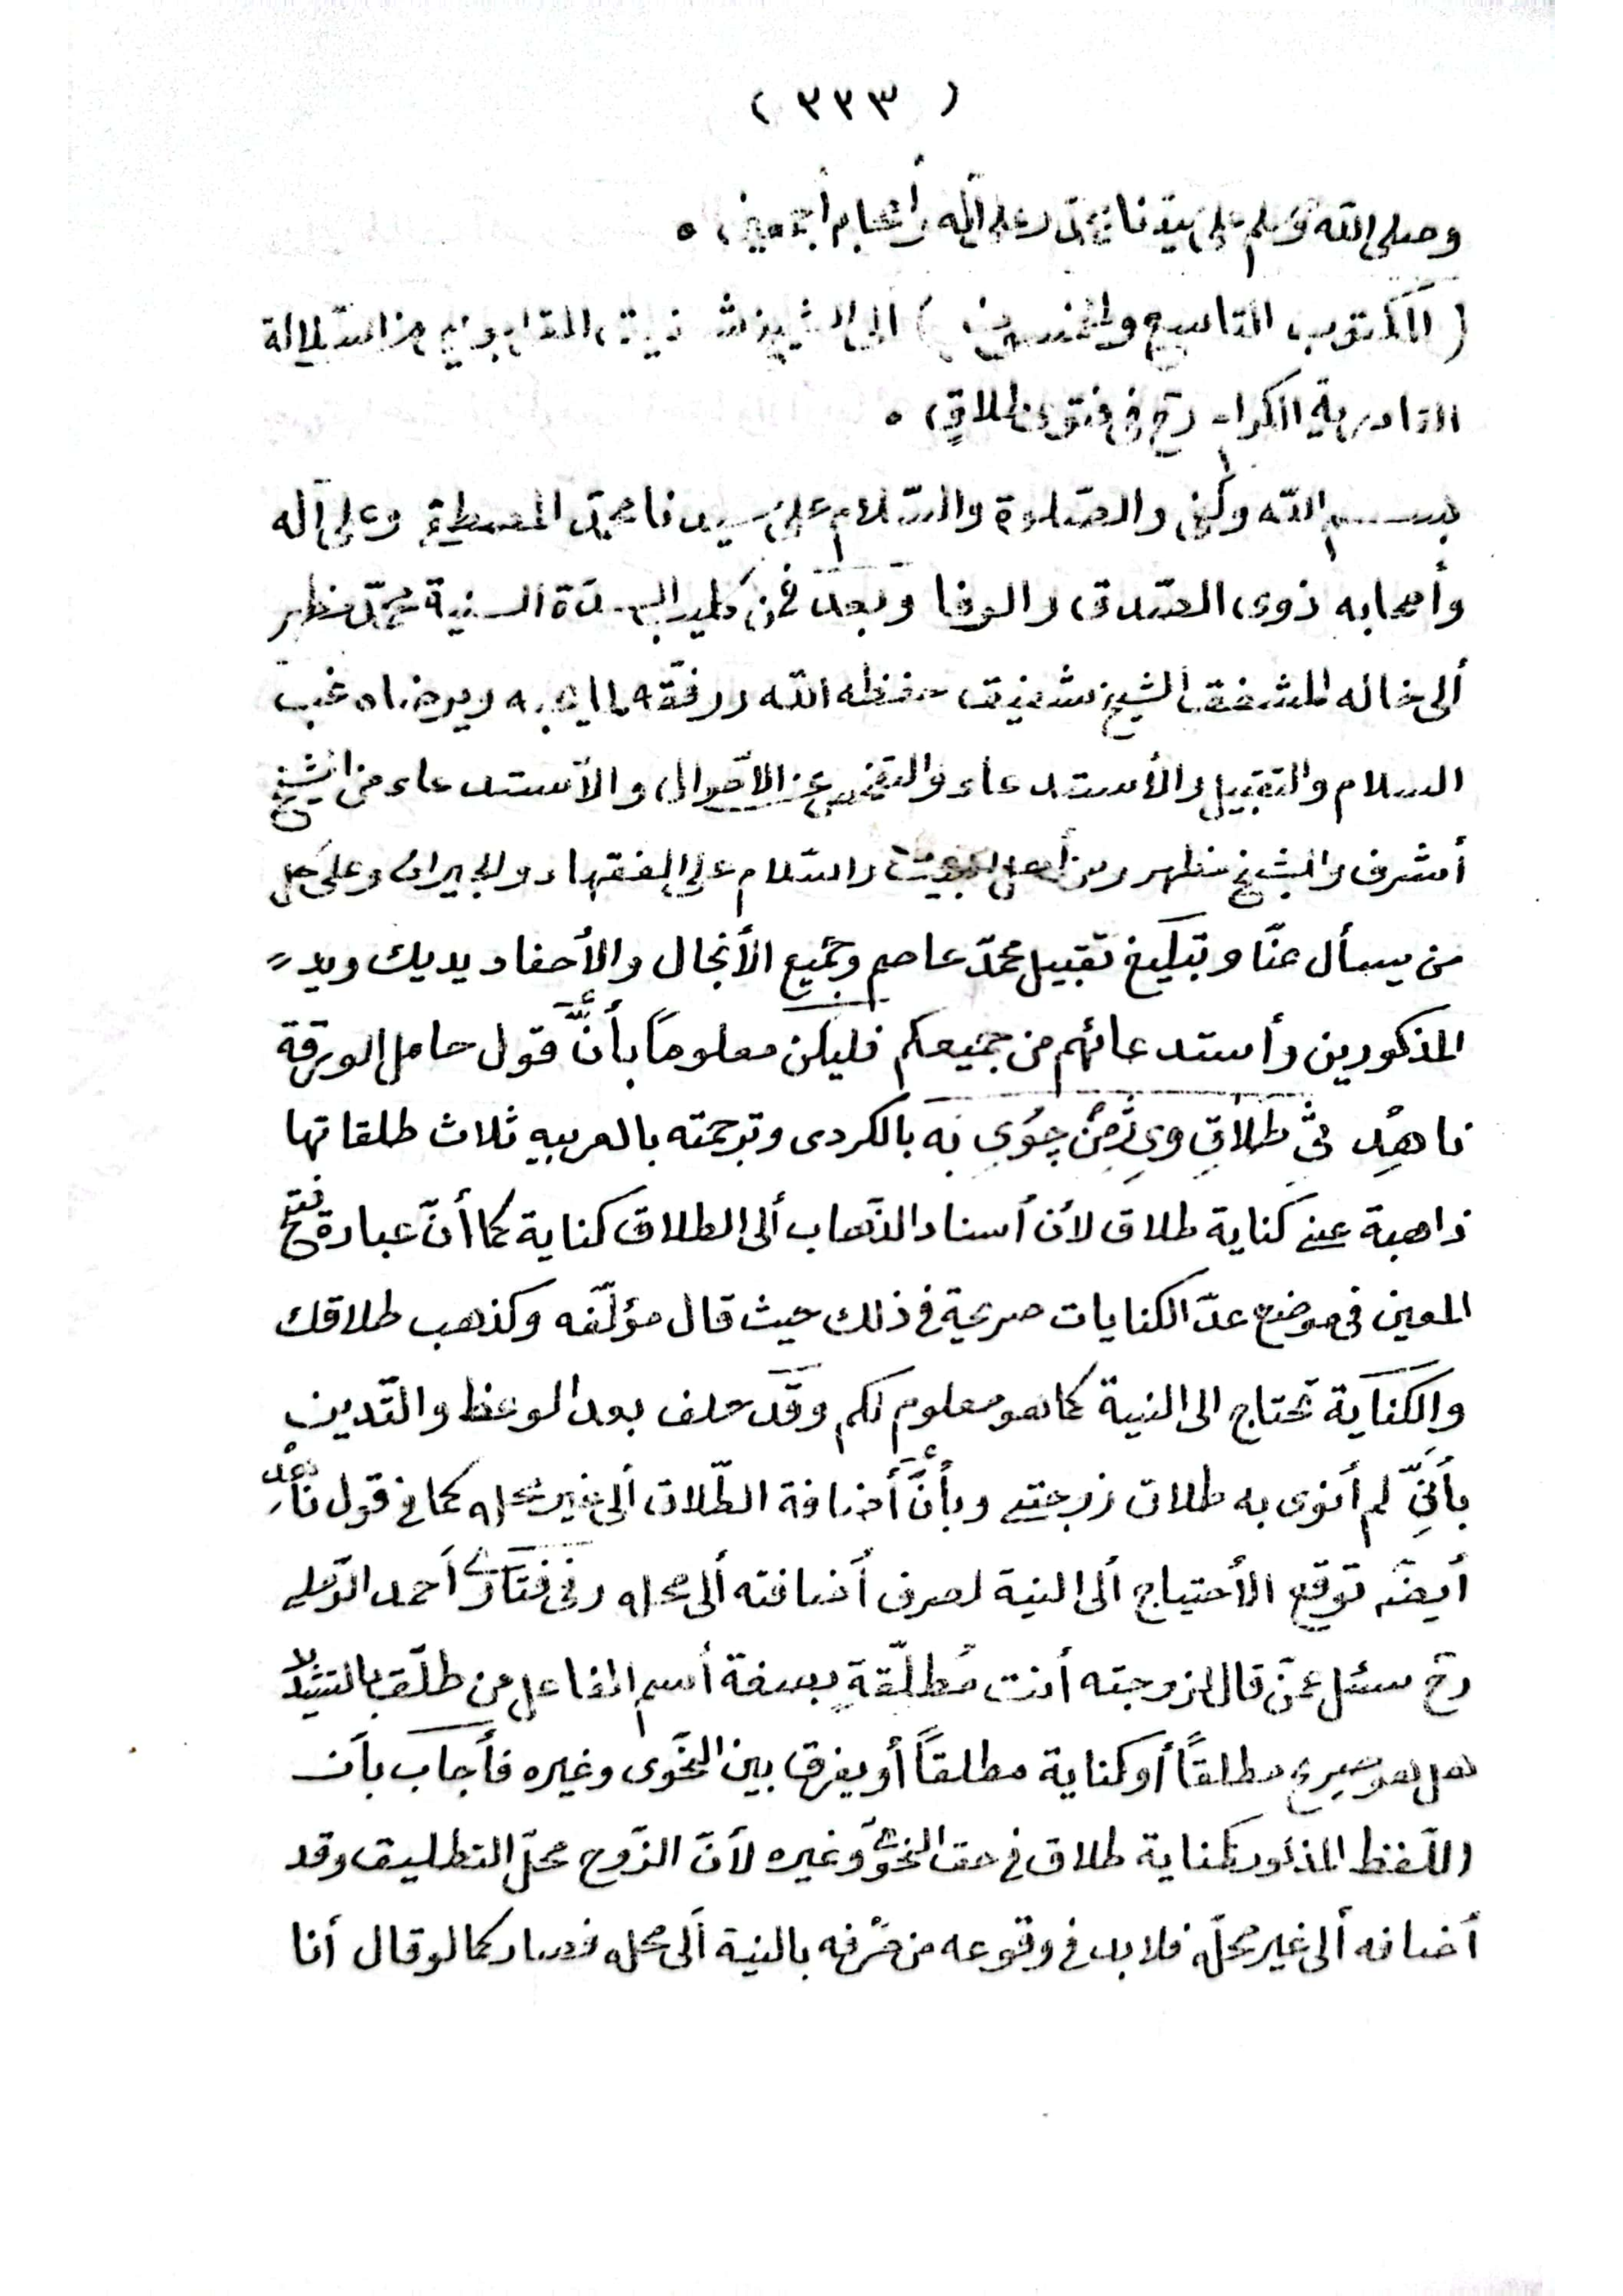 ( ٣٣٣ )
وصلى الله وسلم على سيدنا محمد وعلى آله وأصحابه أجمعين ٠
( المكتوب التاسع والخمسون ) الى الشيخ شفيق من السلالة
القادرية الكرام رح فى فتوى طلاقٍ ٠
بسم الله وكفى والصّلوة والسّلام على سيدنا محمّد المصطفى وعلى آله
وأصحابه ذوى الصّدق والوفا وبعد فمن كليب السدّة السنية محمّد مظهر
ألى خاله المشفق الشيخ شفيق حفظه الله ووفقه لما يحبه ويرضاه غبّ
السلام والتقبيل والأستدعاء والتفحص عن الأحوال والأستدعاء من الشيخ
أشرف والشيخ مظهر ومن أهل البيوت والسّلام على الفقهاء والجيران وعلى كل
من يسأل عنّا وتبليغ تقبيل محمّد عاصم وجميع الأنجال والأحفاد يديك ويد
المذكورين وأستدعائهم من جميعكم فليكن معلوماً بأنَّ قول حامل الورقة
ناهِدْ طلاقِ وىِ ژِمِنْ چوُىِ نَه بالكردى وترجمته بالعربيه ثلاث طلقاتها
ذاهبة عنى كناية طلاق لأن أسناد الذّهاب ألى الطلاق كناية كما أنّ عبارة فتح
المعين فى موضع عدّ الكنايات صريحة فى ذلك حيث قال مؤلّفه وكذهب طلاقك
والكناية تحتاج الى النية كما هو معلوم لكم وقد حلف بعد الوعظ والتّديين
بأنِّى لم أنوى به طلاق زوجتى وبأنَّ أضافة الطّلاق ألى غير محله كما فى قول ناهد
أيضًا توقع الأحتياج ألى النية لصرف أضافته ألى محله وفى فتاوى أحمد الرّملى
رح سئل عمّن قال لزوجته أنت مُطلّقةٍ بصفة أسم الفاعل من طلّق بالتشديد
هل هو صريح مطلقاً أو كناية مطلقاً أو يفرق بين النّحوى وغيره فأجاب بأن
اللّفظ المذكور كناية طلاق فى حق النحوى وغيره لأنّ الزّوج محلّ التطليق وقد
أضافه ألى غير محلّه فلا بد فى وقوعه من صرفه بالنية ألى محله فصار كما لو قال أنا